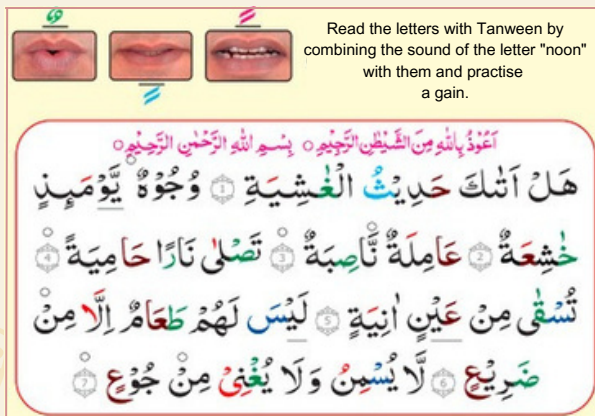 Read the letters with Tanween by
combining the sound of the letter "noon"
with them and practise
a gain.
اَعُوْذُ بِاللّٰهِ مِنَ الشَّيْطٰنِ الرَّجِيْمِ ○ بِسْمِ اللّٰهِ الرَّحْمٰنِ الرَّحِيْمِ ○
هَلْ اَتٰىكَ حَدِيْثُ الْغٰشِيَةِ ۝1 وُجُوْهٌ يَّوْمَىِٕذٍ
خٰشِعَةٌ ۝2 عَامِلَةٌ نَّاصِبَةٌ ۝3 تَصْلٰى نَارًا حَامِيَةً ۝4
تُسْقٰى مِنْ عَيْنٍ اٰنِيَةٍ ۝5 لَيْسَ لَهُمْ طَعَامٌ اِلَّا مِنْ
ضَرِيْعٍ ۝6 لَّا يُسْمِنُ وَلَا يُغْنِيْ مِنْ جُوْعٍ ۝7